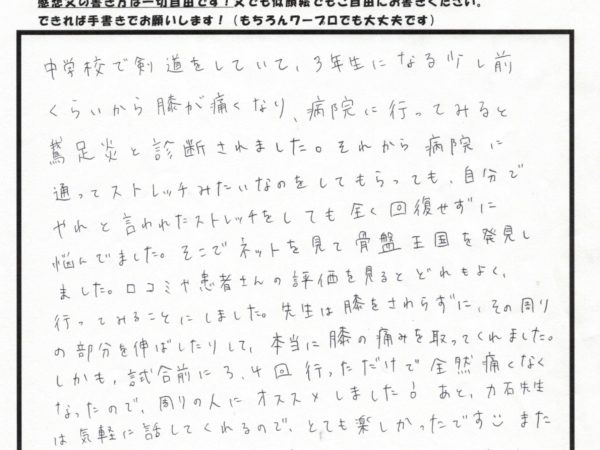 感想文の書き方は一切自由です！文でも似顔絵でもご自由にお書きください。
できれば手書きでお願いします！（もちろんワープロでも大丈夫です）
中学校で剣道をしていて、3年生になる少し前
くらいから膝が痛くなり、病院に行ってみると
鵞足炎と診断されました。それから病院に
通ってストレッチみたいなのをしてもらっても、自分で
やれと言われたストレッチをしても全く回復せずに
悩んでました。そこでネットを見て骨盤王国を発見し
ました。口コミや患者さんの評価を見るとどれもよく、
行ってみることにしました。先生は膝をさわらずに、その周り
の部分を伸ばしたりして、本当に膝の痛みを取ってくれました。
しかも、試合前に3、4回行っただけで全然痛くなく
なったので、周りの人にオススメしました！あと、力石先生
は気軽に話してくれるので、とても楽しかったです また